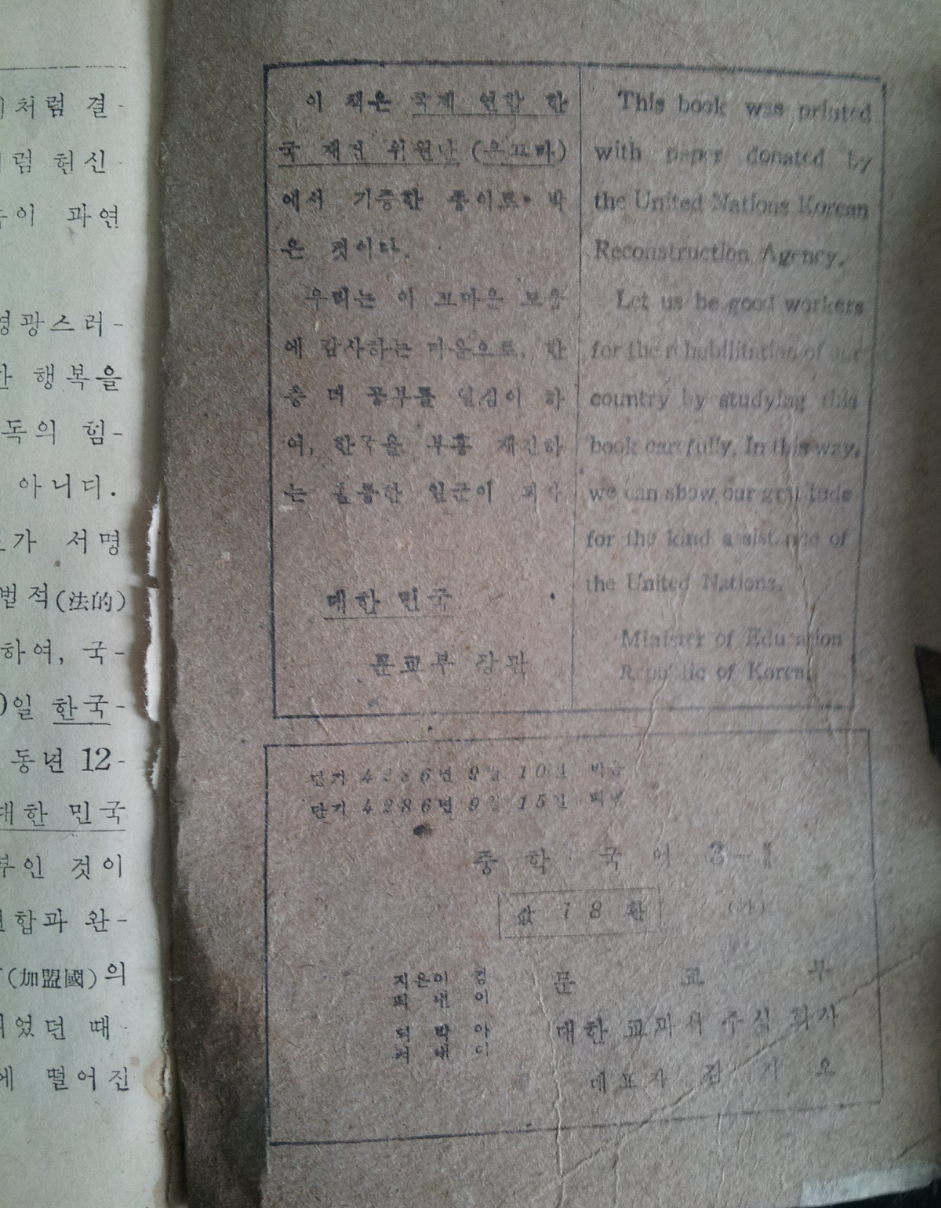 처럼 결-
럼 헌신-
이 과연
영광스러-
행복을
독의 힘-
아니다.
가 서명
법적(法的)
하여, 국-
일 한국-
동년 12-
대한 민국
부인 것이
연합과 완-
(加盟國)의
었던 때-
에 떨어진
이 책은 국제 연합 한
국 재건 위원단 (운끄라)
에서 기증한 종이로 박
은 것이다.
우리는 이 고마운 도움
에 감사하는 마음으로, 한
층 더 공부를 열심히 하
여, 한국을 부흥 재건하
는 훌륭한 일군이 되자
대한 민국
문교부 장관
This book was printed
with paper donated by
the United Nations Korean
Reconstruction Agency.
Let us be good workers
for the rehabilitation of our
country by studying this
book carefully. In this way,
we can show our gratitude
for the kind assistance of
the United Nations.
Minister of Education
Republic of Korea
단기 4286년 9월 10일 박음
단기 4286년 9월 15일 펴냄
중학 국어 3-I
값 78환
지은이 겸
펴낸이
문교부
박아
펴낸이
대한 교과서 주식 회사
대표자 김기오